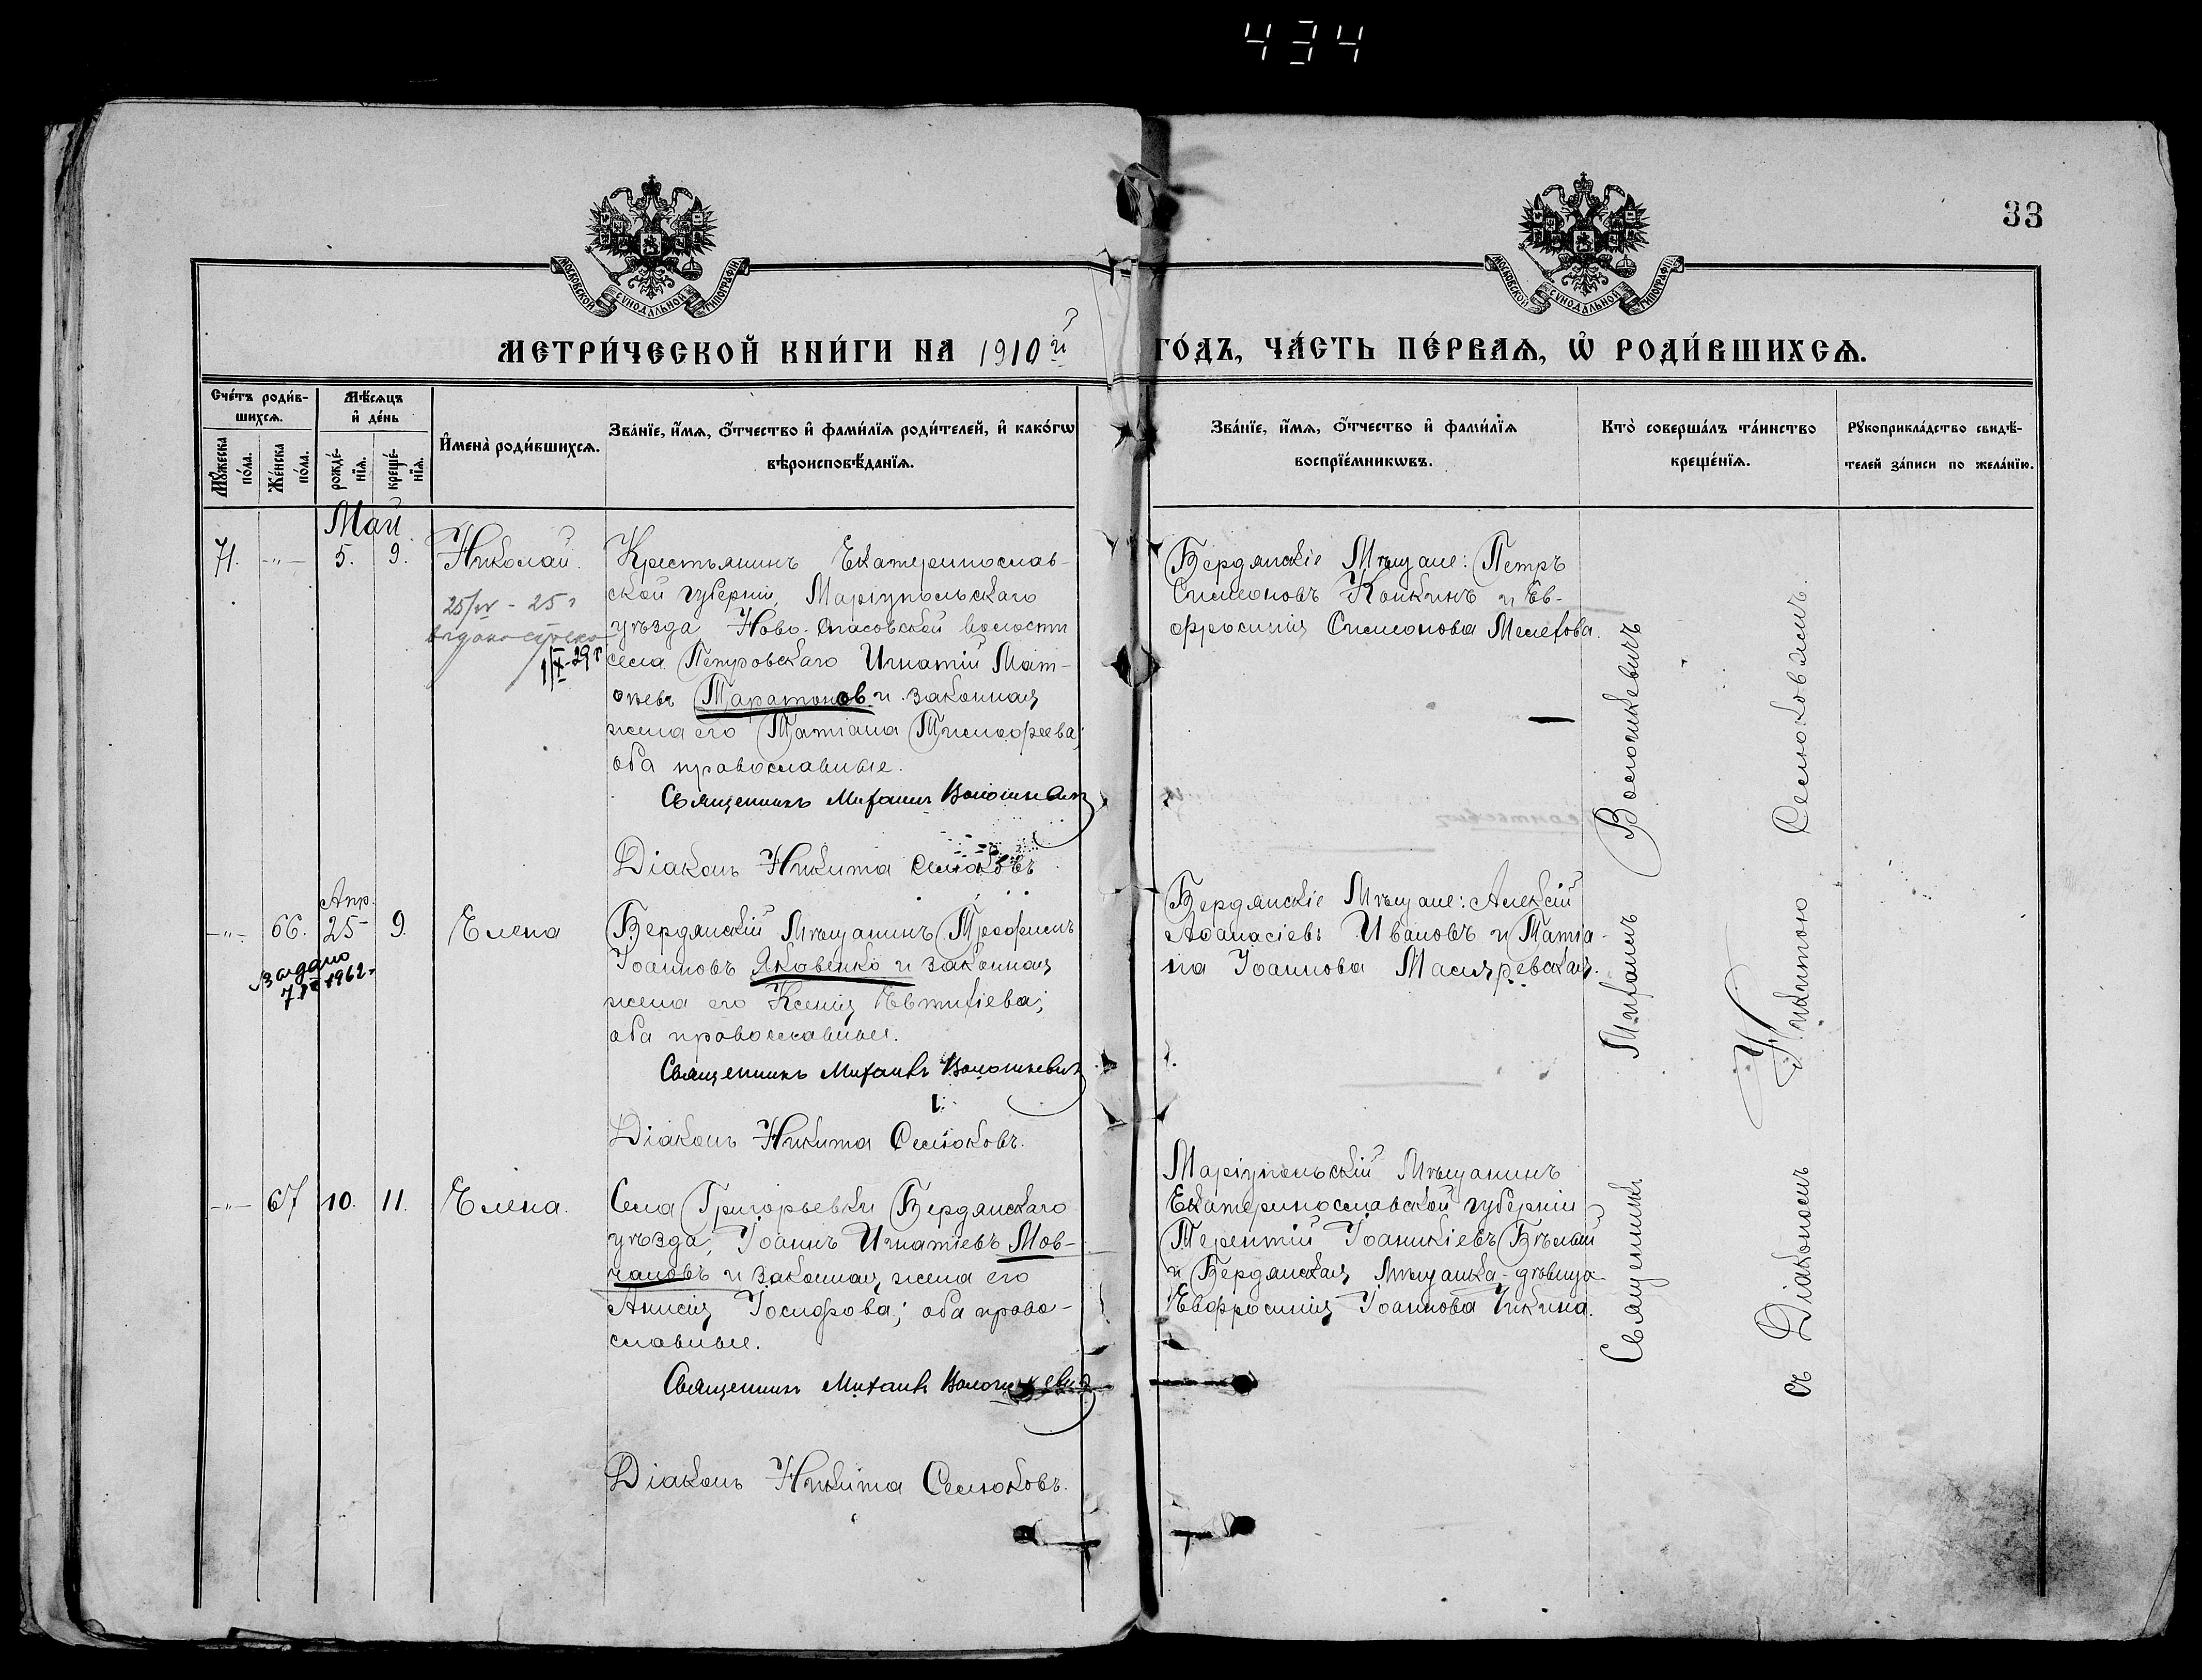 434
33
МОСКОВСКОЙ СѴНОДАЛЬНОЙ ТИПОГРАФІИ
МОСКОВСКОЙ СѴНОДАЛЬНОЙ ТИПОГРАФІИ
МЕТРИ́ЧЕСКОЙ КНИ́ГИ НА 1910й
ГО́ДЪ, ЧА́СТЬ ПЕ́РВАѦ, Ѡ҆ РОДИ́ВШИХСѦ.
Сче́тъ роди́в-
шихсѧ.
Мꙋ́жеска по́ла.
Же́нска по́ла.
Мѣ́сѧцъ
и҆ де́нь
рожде́-
нїѧ.
креще́-
нїѧ.
И҆мена̀ роди́вшихсѧ.
Зва́нїе, и҆́мѧ, ѻ҆́тчество и҆ фами́лїѧ роди́телей, и҆ како́гѡ
вѣроисповѣ́данїѧ.
Зва́нїе, и҆́мѧ, ѻ҆́тчество и҆ фами́лїѧ
воспрїе́мникѡвъ.
Кто̀ соверша́лъ та́инство
креще́нїѧ.
Рꙋкоприкла́дство свидѣ́-
телей за́писи по жела́нїю.
Май
71. -"- 5. 9. Николай.
25/IV - 25 г
1/X-29 г
Крестьянинъ Екатеринослав-
ской губерніи, Маріупольскаго
уѣзда, Ново-Спасовской волости
села Петровскаго Игнатій Мат-
ѳеевъ Таратонов и законная
жена его Татіана Тимоѳеева;
оба православные.
Священникъ Михаилъ Волошкевич
Діаконъ Никита Семоковъ
Бердянскіе Мѣщане: Петръ
Симеоновъ Койкинъ и Ев-
фросинія Симеонова Мелехова.
Апр.
-"- 66. 25 - 9. Елена
Выдано
7.IX 1962.
Бердянскій Мѣщанинъ Трофимъ
Іоанновъ Яковенко и законная
жена его Ксенія Евтихіева;
оба православные.
Священникъ Михаилъ Волошкевич
Діаконъ Никита Семоковъ.
Бердянскіе Мѣщане: Алексій
Аѳанасіевъ Ивановъ и Татіа-
на Іоаннова
-"- 67 10. 11. Елена.
Села Григорьевки Бердянскаго
уѣзда, Іоаннъ Игнатіевъ Мов-
чановъ и законная жена его
Анисія Іосифова; оба право-
славные.
Священникъ Михаилъ Волошкевич
Діаконъ Никита Семоковъ.
Маріупольскій Мѣщанинъ
Екатеринославской губерніи
Терентій Іоаникіевъ Бѣлай
и Бердянская Мѣщанка-дѣвица
Евфросинія Іоаннова Чикина.
Священникъ Михаилъ Волошкевичъ
съ Діакономъ Никитою Семоковымъ.